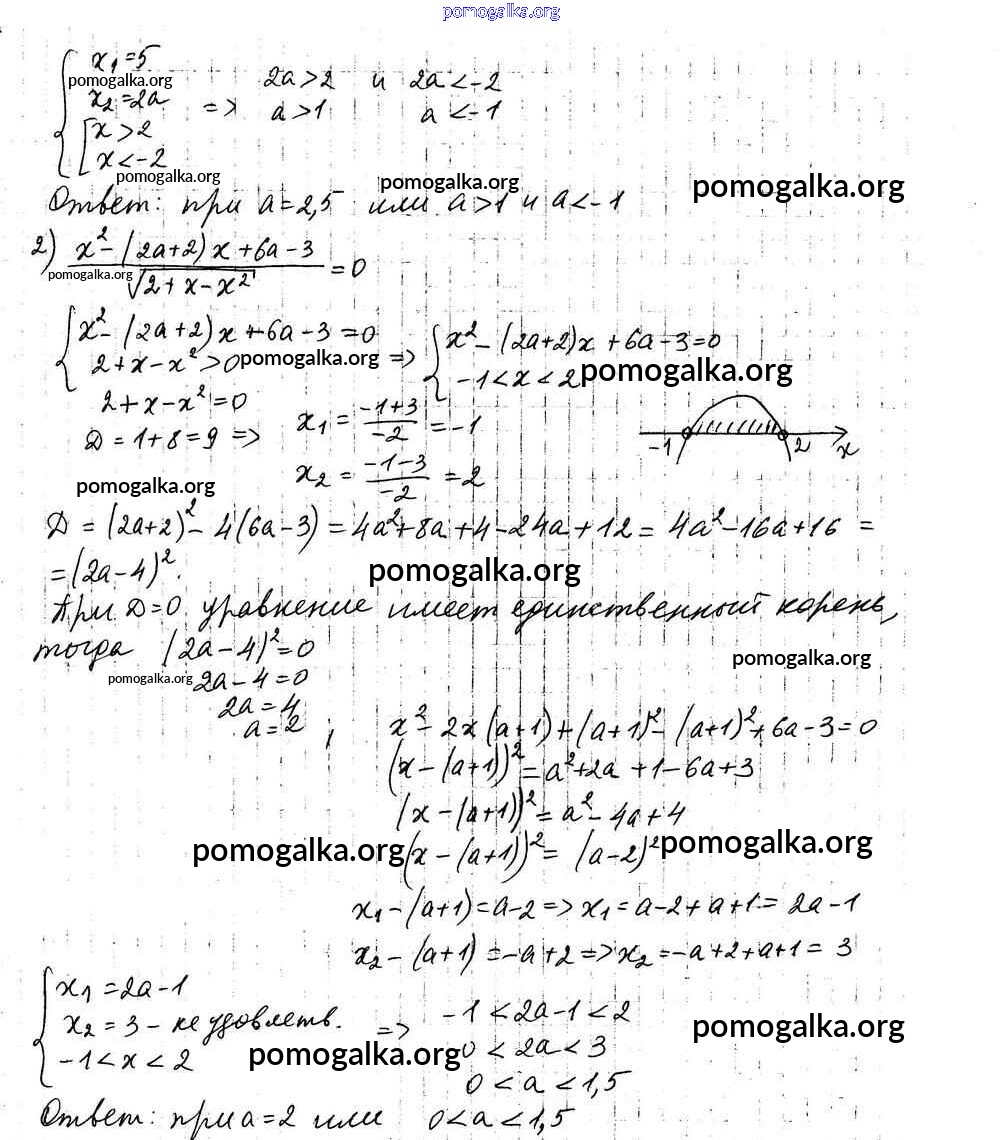 pomogalka.org
x₁ = 5
pomogalka.org
x₂ = 2a => 2a > 2 и 2a < -2
x > 2 a > 1 a < -1
x < -2
pomogalka.org pomogalka.org pomogalka.org
Ответ: при a = 2,5 или a > 1 и a < -1
2) (x² - (2a+2)x + 6a - 3) / √(2 + x - x²) = 0
pomogalka.org
{ x² - (2a+2)x + 6a - 3 = 0 { x² - (2a+2)x + 6a - 3 = 0
2 + x - x² > 0 pomogalka.org => -1 < x < 2 pomogalka.org
2 + x - x² = 0
Д = 1 + 8 = 9 => x₁ = (-1+3)/(-2) = -1
-1 2 x
x₂ = (-1-3)/(-2) = 2
pomogalka.org
Д = (2a+2)² - 4(6a-3) = 4a² + 8a + 4 - 24a + 12 = 4a² - 16a + 16 =
= (2a-4)².
pomogalka.org
При Д = 0 уравнение имеет единственный корень,
тогда (2a-4)² = 0
pomogalka.org
pomogalka.org 2a - 4 = 0
2a = 4
a = 2 ; x² - 2x(a+1) + (a+1)² - (a+1)² + 6a - 3 = 0
(x - (a+1))² = a² + 2a + 1 - 6a + 3
(x - (a+1))² = a² - 4a + 4
pomogalka.org (x - (a+1))² = (a-2)² pomogalka.org
x₁ - (a+1) = a - 2 => x₁ = a - 2 + a + 1 = 2a - 1
x₂ - (a+1) = -a + 2 => x₂ = -a + 2 + a + 1 = 3
{ x₁ = 2a - 1
x₂ = 3 - не удовлетв. => -1 < 2a - 1 < 2
pomogalka.org
-1 < x < 2 pomogalka.org 0 < 2a < 3
0 < a < 1,5
Ответ: при a = 2 или 0 < a < 1,5